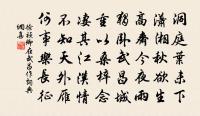 洞庭葉未下
瀟湘秋欲生
高齋今夜雨
獨臥武昌城
重以桑梓念
淒其江漢情
不知天外雁
何事樂長征
徐禎卿在武昌作詞典
網